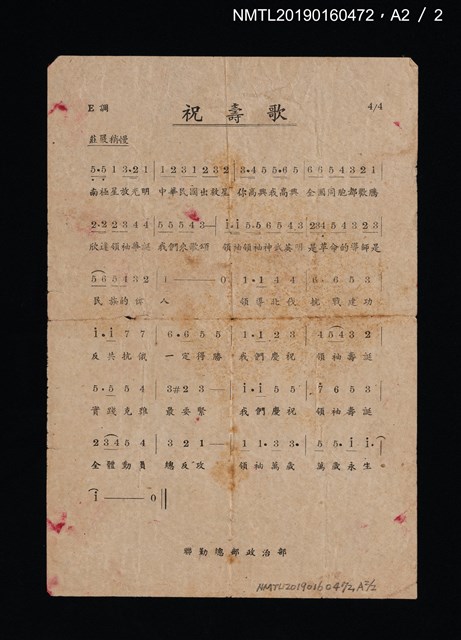 NMTL20190160472，A2 / 2
E 調
祝壽歌
4/4
莊嚴稍慢
5·5 1 3·2 1 1 2 3 1 2 3 2 3·4 5 5·6 5 6 6 5 4 3 2 1
南極星放光明 中華民國出救星 你高興我高興 全國同胞都歡騰
2·2 2 2 3 4 5 5 5 4 3— i·i 5 5 6 5 4 3 2 3 4 5 4 3 2 3
欣逢領袖華誕 我們來歌頌 領袖領袖神武英明 是革命的導師是
5 6 5 4 3 2 1 —— 0 1·1 4 4 6·6 5 3
民族的偉人 領導北伐 抗戰建功
i·i 7 7 6·6 5 5 1·1 2 3 4 5 4 3 2
反共抗俄 一定得勝 我們慶祝 領袖壽誕
5·5 5 4 3 #2 3 — i·i 5 5 7 6 5 3
實踐克難 最要緊 我們慶祝 領袖壽誕
2 3 4 5 4 3 2 1 — 1 1·3 3· 5 5·i i·
全體動員 總反攻 領袖萬歲 萬歲永生。
i —— 0
聯勤總部政治部
NMTL20190160472, A2/2